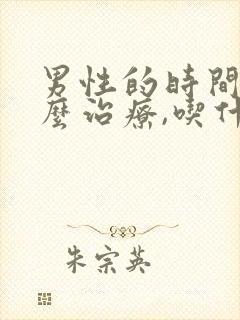 男性的時間
麼治療,喫什
朱宗英